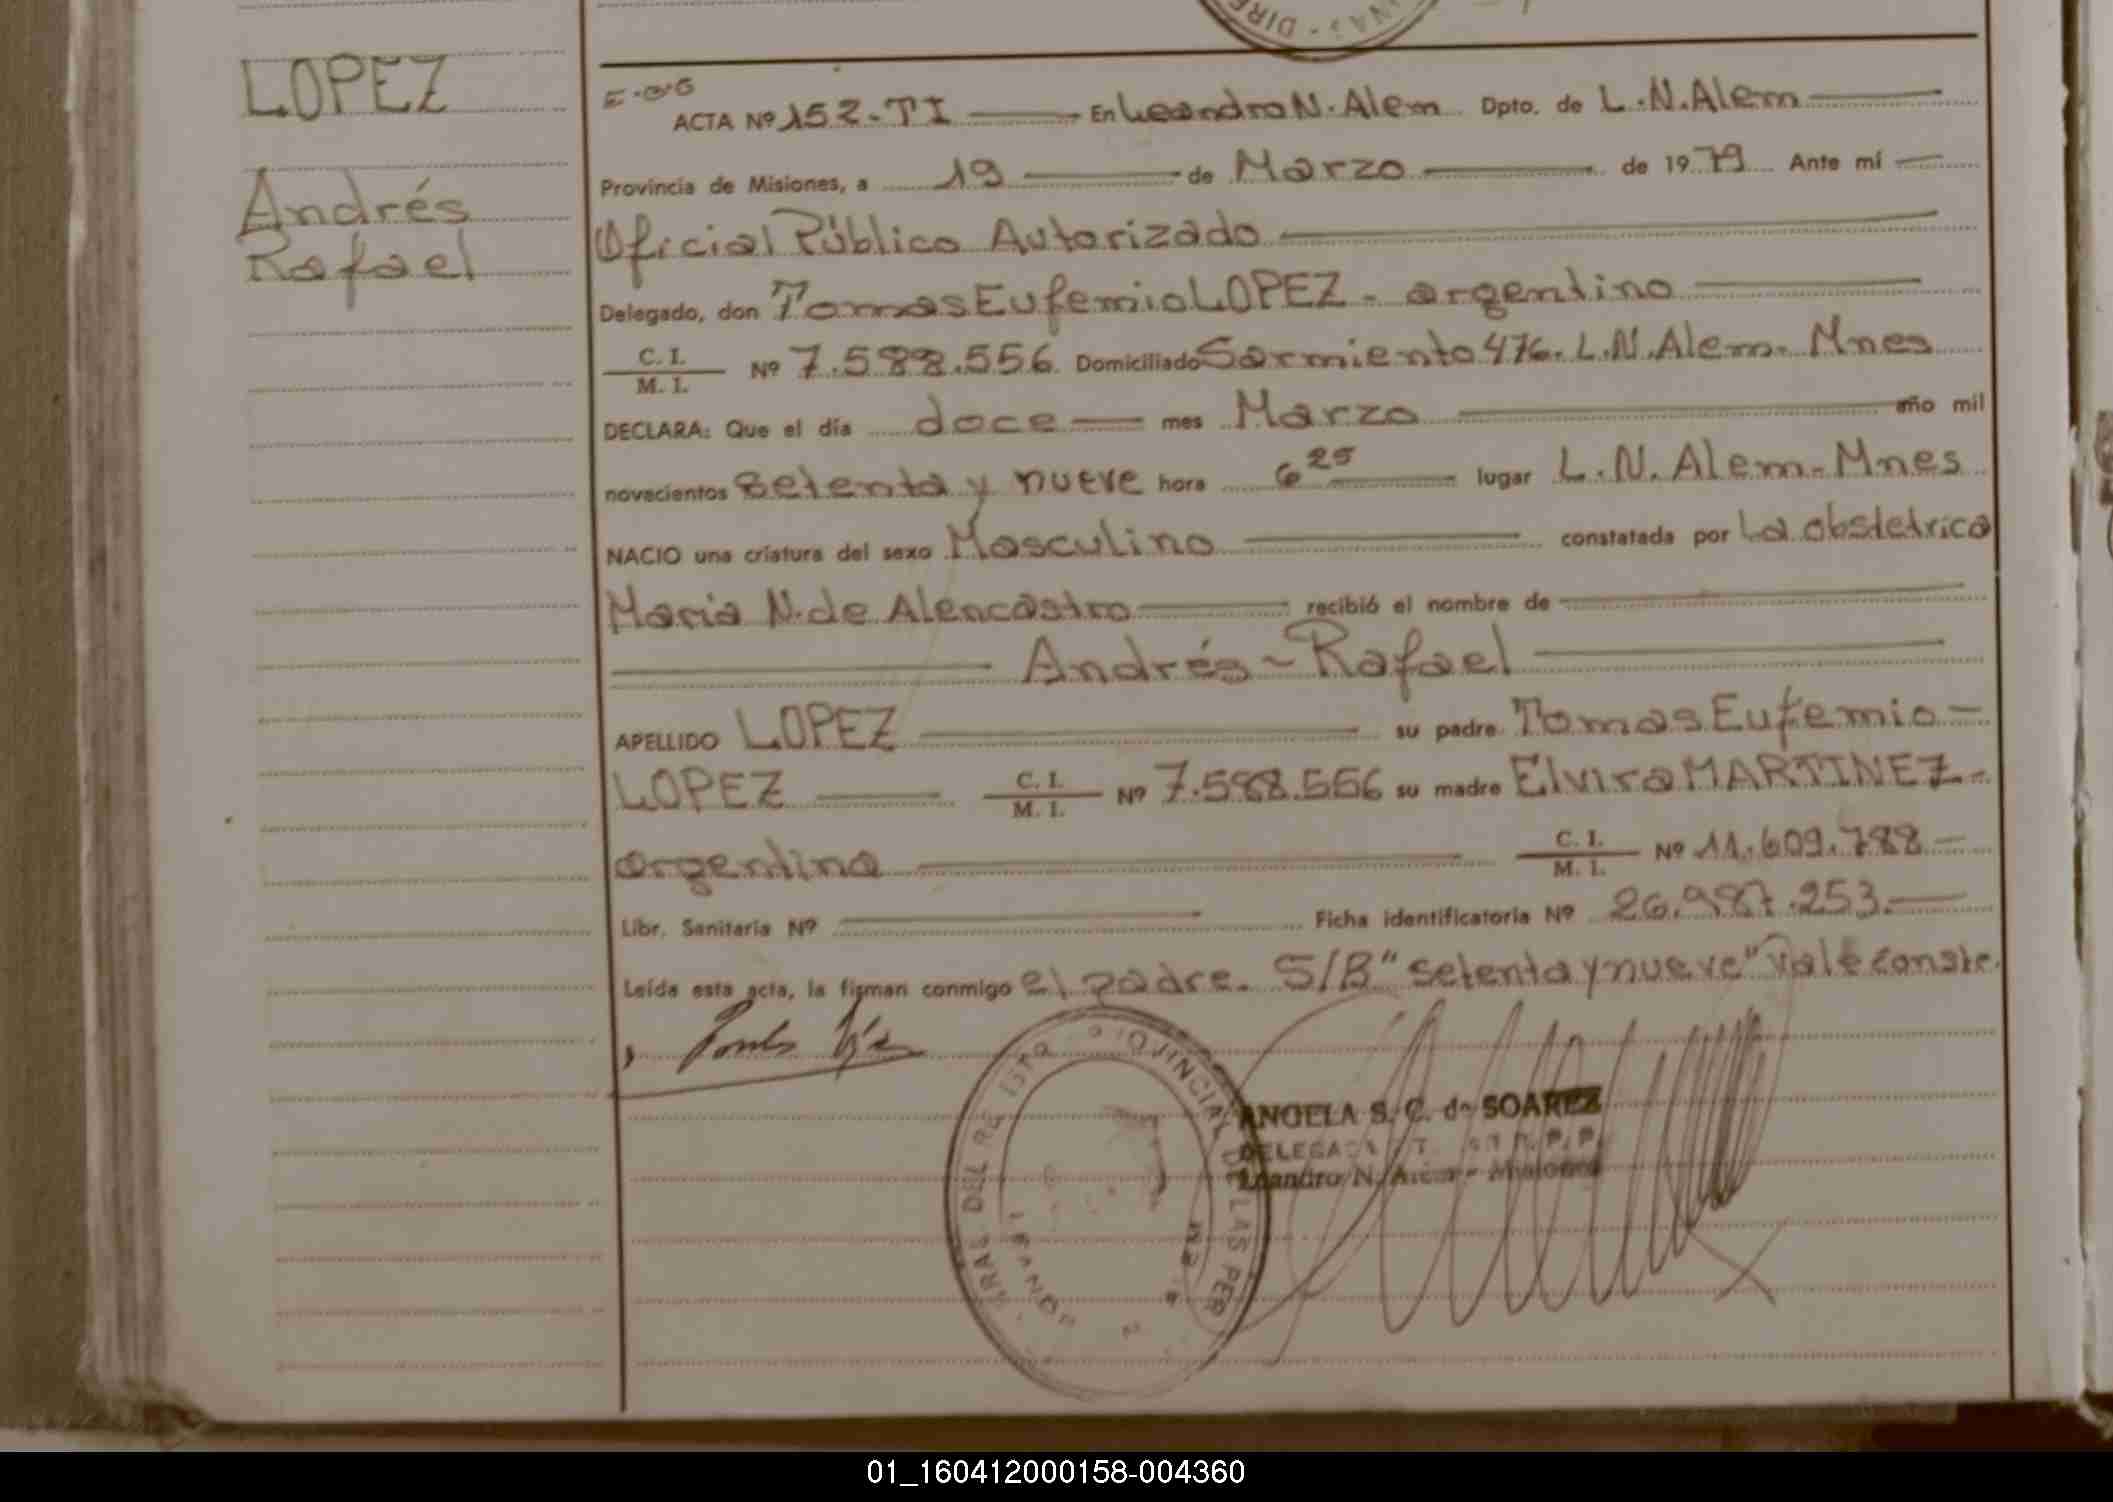 DIRE
LOPEZ
Andrés
Rafael
ACTA Nº 152-TI En Leandro N. Alem Dpto. de L.N. Alem
Provincia de Misiones, a 19 de Marzo de 1979 Ante mí
Oficial Público Autorizado
Delegado, don Tomas Eufemio LOPEZ - argentino
C. I. / M. I. Nº 7.588.556 Domiciliado Sarmiento 476. L.N. Alem. Mnes
DECLARA: Que el día doce mes Marzo año mil
novecientos setenta y nueve hora 6 25 lugar L.N. Alem. Mnes
NACIO una criatura del sexo Masculino constatada por La obstetrica
Maria N. de Alencastro recibió el nombre de
Andrés - Rafael
APELLIDO LOPEZ su padre Tomas Eufemio -
LOPEZ C. I. / M. I. Nº 7.588.556 su madre Elvira MARTINEZ -
argentina C. I. / M. I. Nº 11.609.788 -
Libr. Sanitaria Nº Ficha identificatoria Nº 26.987.253. -
Leída esta acta, la firman conmigo el padre. S/B "setenta y nueve" Vale conste.
ANGELA S. C. de SOAREZ
Leandro N. Alem - Misiones
01_160412000158-004360